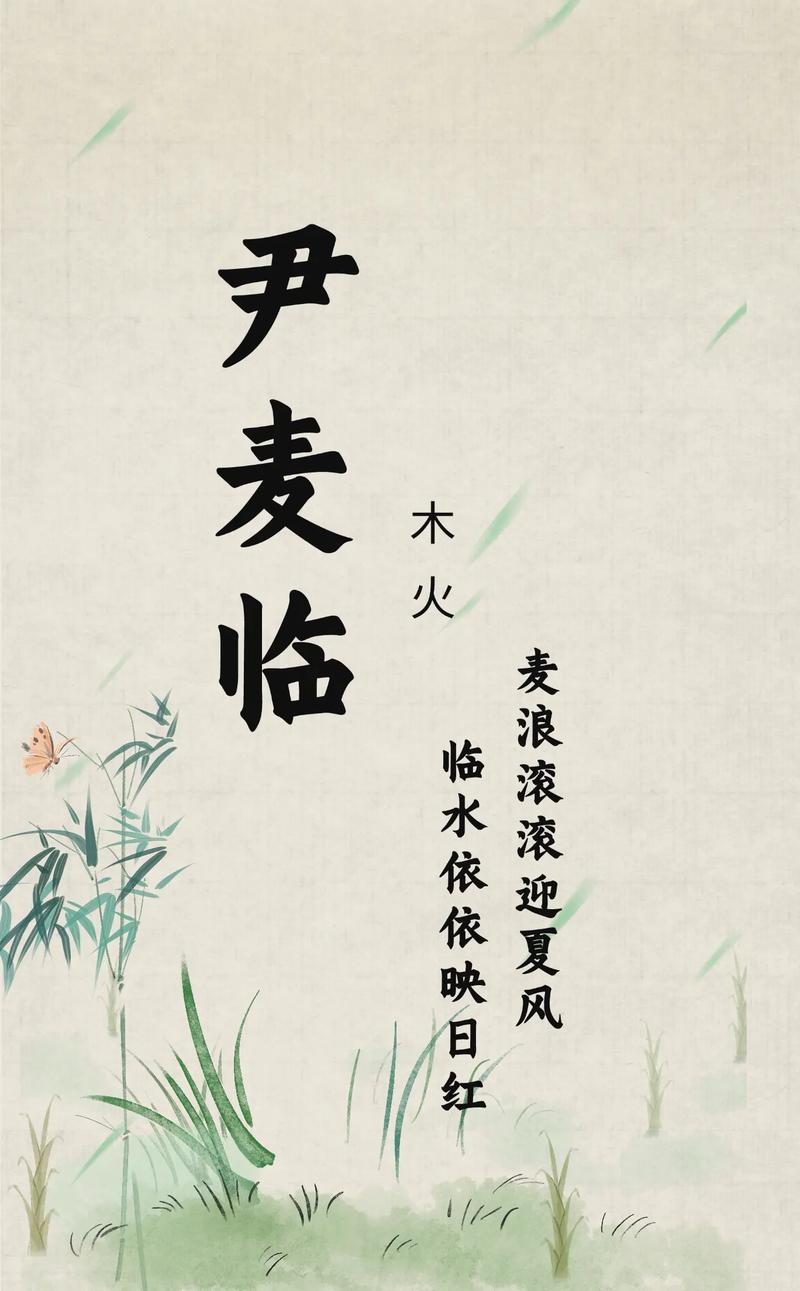 尹麦临
木火
麦浪滚滚迎夏风
临水依依映日红